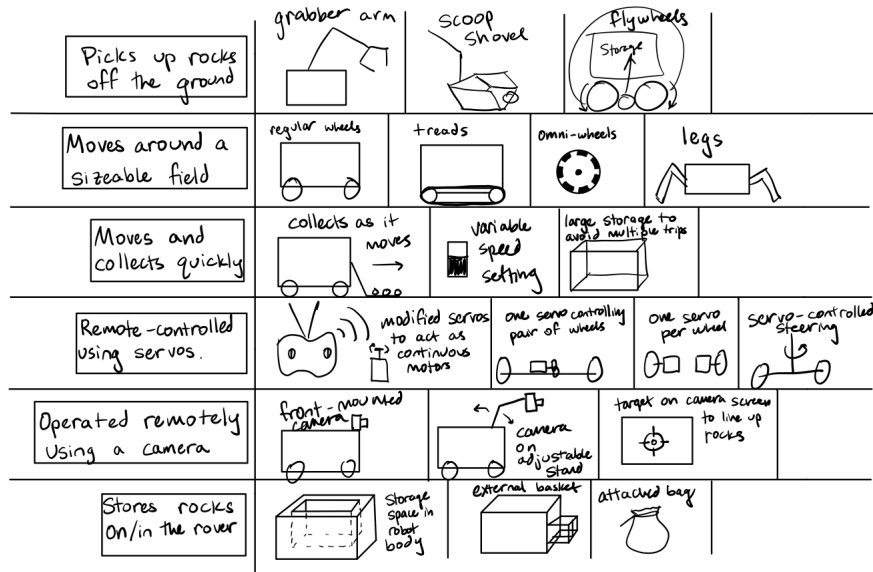 Picks up rocks
off the ground
grabber arm
scoop
shovel
flywheels
Storage
Moves around a
sizeable field
regular wheels
treads
omni-wheels
legs
Moves and
collects quickly
collects as it
moves
variable
speed
setting
large storage to
avoid multiple trips
Remote-controlled
using servos.
modified servos
to act as
continuous
motors
one servo controlling
pair of wheels
one servo
per wheel
servo-controlled
steering
Operated remotely
using a camera
front-mounted
camera
camera
on
adjustable
stand
target on camera screen
to line up
rocks
Stores rocks
on/in the rover
Storage
space in
robot
body
external basket
attached bag